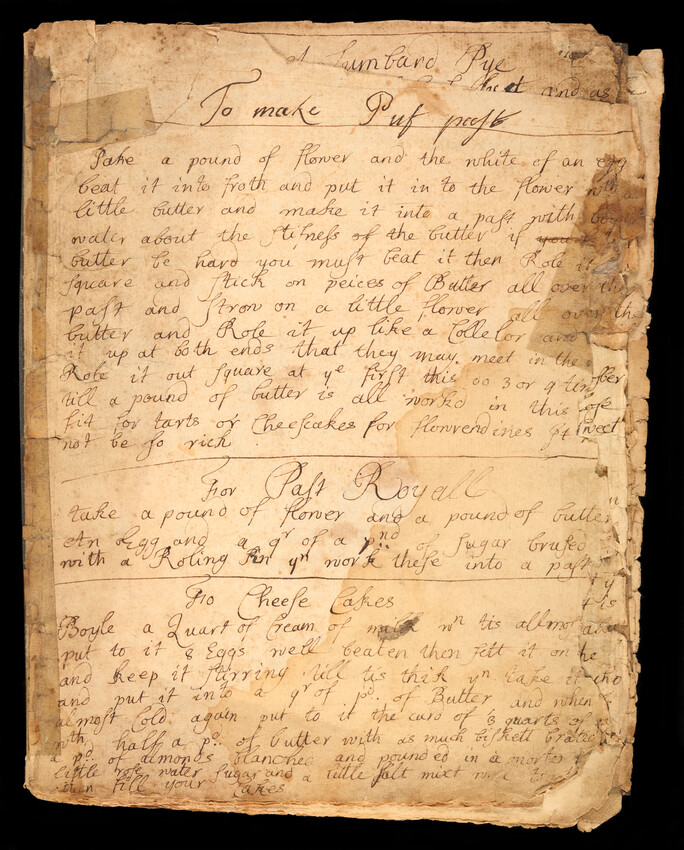 A Lumbard Pye
and as
To make Puf past
Take a pound of flower and the white of an egg
beat it into froth and put it in to the flower with a
little butter and make it into a past with
water about the stifness of the butter if
butter be hard you must beat it then Role it
square and stick on peices of Butter all over the
past and strow on a little flower all over the
butter and Role it up like a Colleler and
it up at both ends that they may meet in the
Role it out square at ye first this do 3 or 4
till a pound of butter is all workd in this
fit for tarts or Cheescakes for flowrendines it
not be so rich
For Past Royall
take a pound of flower and a pound of butter
An Egg and a qr of a pnd of sugar brused
with a Roling Pin yn work these into a past
Fo Cheese Cakes
Boyle a Quart of Cream of milk wn tis allmost
put to it 8 Eggs well beaten then sett it on
and keep it stirring till tis thick yn take it
and put it into a qr of pd. of Butter and when
almost Cold again put to it the curd of 3 quarts of
with half a pd. of butter with as much biskett
a pd. of almonds blanched and pounded in a mortor
little rose water sugar and a little salt mixt
then fill your Cakes